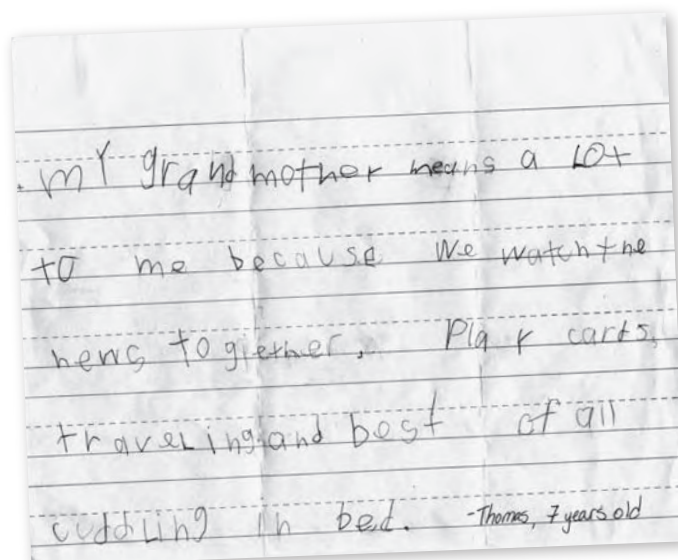 . my grandmother means a LOt
to me because We watch the
news togiether, Play carts,
traveLing and best of all
cuddLing in bed. -Thomas, 7 years old